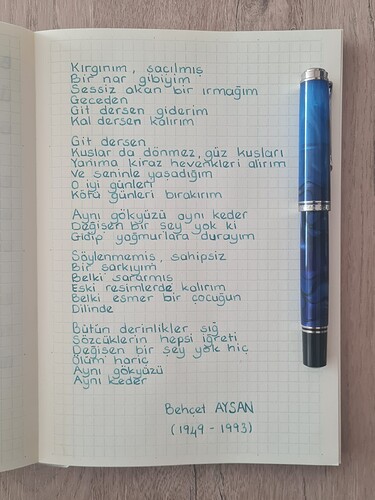 Kırgınım, saçılmış
Bir nar gibiyim
Sessiz akan bir ırmağım
Geceden
Git dersen giderim
Kal dersen kalırım
Git dersen
Kuşlar da dönmez, güz kuşları
Yanıma kiraz hevenkleri alırım
Ve seninle yaşadığım
O iyi günleri
Kötü günleri bırakırım
Aynı gökyüzü aynı keder
Değişen bir şey yok ki
Gidip yağmurlara durayım
Söylenmemiş, sahipsiz
Bir şarkıyım
Belki sararmış
Eski resimlerde kalırım
Belki esmer bir çocuğun
Dilinde
Bütün derinlikler sığ
Sözcüklerin hepsi iğreti
Değişen bir şey yok hiç
Ölüm hariç
Aynı gökyüzü
Aynı keder
Behçet AYSAN
(1949-1993)